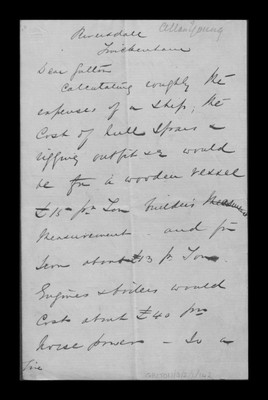 Allen Young
Riversdale
Twickenham
Dear Galton
Calculating roughly the
expenses of a Ship, the
Cost of hull Spars &
rigging outfit &c would
be for a wooden vessel
£15 pr Ton Builders
Measurement. and for
Iron about £13 pr Ton.
Engines & boilers would
Cost about £40 per
horse power - So a